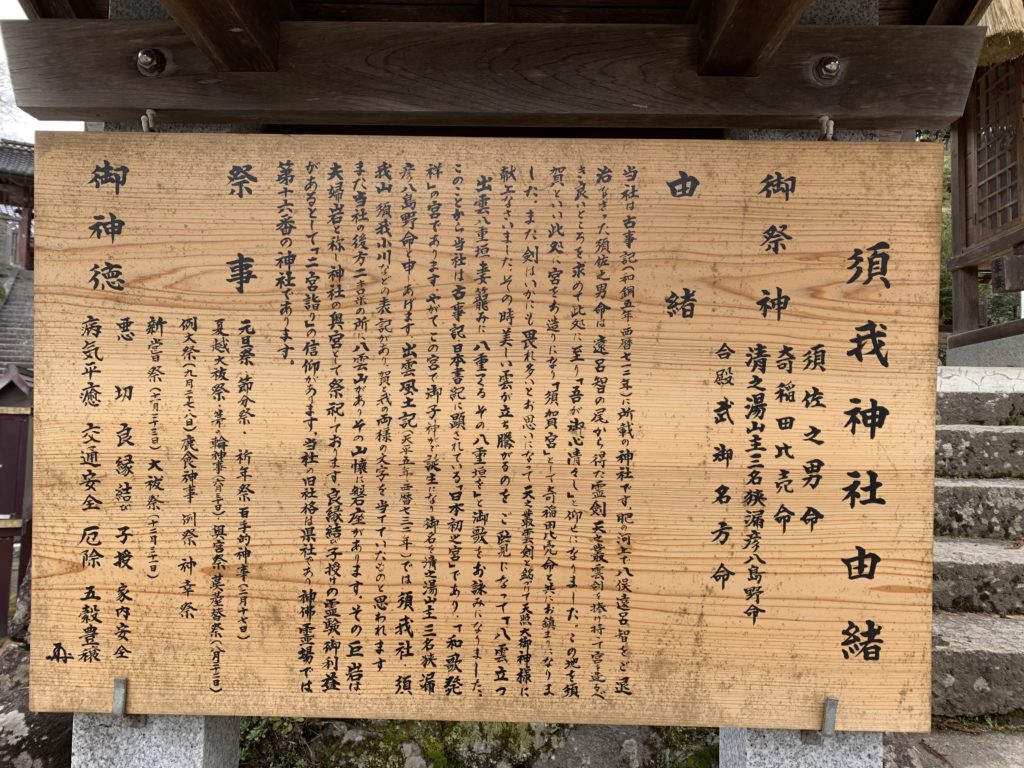 須我神社由緒
御祭神
須佐之男命
奇稲田比売命
清之湯山主三名狭漏彦八島野命
合殿 武御名方命
由緒
当社は古事記(和銅五年西暦七一二年)に所載の神社です。肥の河上で八俣遠呂智をご退
治なさった須佐之男命は、遠呂智の尾から得た霊剣天叢雲剣を振り持て宮造るべ
き良いところを求めて此処に至り「吾が御心清々し」と仰せになりました。この地を須
賀といい此処に宮をお造りになり「須賀宮」として奇稲田比売命と共にお鎮まりになりま
した。また、剣はいかにも畏れ多いとお思いになって天の叢雲剣と銘けて天照大御神様に
献上なさいました。その時美しい雲が立ち騰がるのを、ご覧になって「八雲立つ
出雲八重垣 妻籠みに 八重垣つくる その八重垣を」と御歌をお詠みになりました。
このことから当社は古事記日本書記に顕されている「日本初之宮」であり「和歌発
祥」の宮であります。やがてこの宮で御子神がご誕生になり御名を清之湯山主三名狭漏
彦八島野命と申しあげます。出雲風土記(天平五年西暦七三三年)では須我社 須
我山 須我小川などの表記があり、賀と我の両様の文字を当てていたものと思われます
また当社の後方二粁余の所に八雲山があり、その山懐に磐座があります。その巨岩は
夫婦岩と称し神社の奥宮として祭祀しております。良縁結び子授けの霊験御利益
があるとして「二宮詣り」の信仰があります。当社の旧社格は県社であり神佛霊場では
第十六番の神社であります。
祭事
元旦祭・節分祭・祈年祭 百手的神事(二月十七日)
夏越大祓祭・茅の輪神事(六月三十日)奥宮祭・
例大祭(九月二十八日)鹿食神事 例祭 神幸祭
新嘗祭(十一月二十三日)大祓祭(十二月三十一日)
御神徳
悪切 良縁結び 子授 家内安全
病気平癒 交通安全 厄除 五穀豊穣